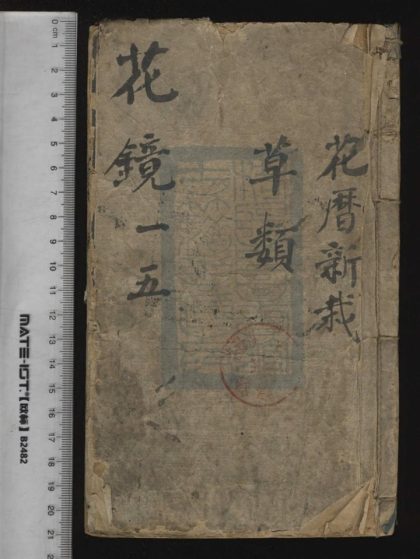 花曆新栽
草類
花鏡一五
0 cm 1 2 3 4 5 6 7 8 9 10 11 12 13 14 15 16 17 18 19 20 21
MATE-IST【欧标】B2482